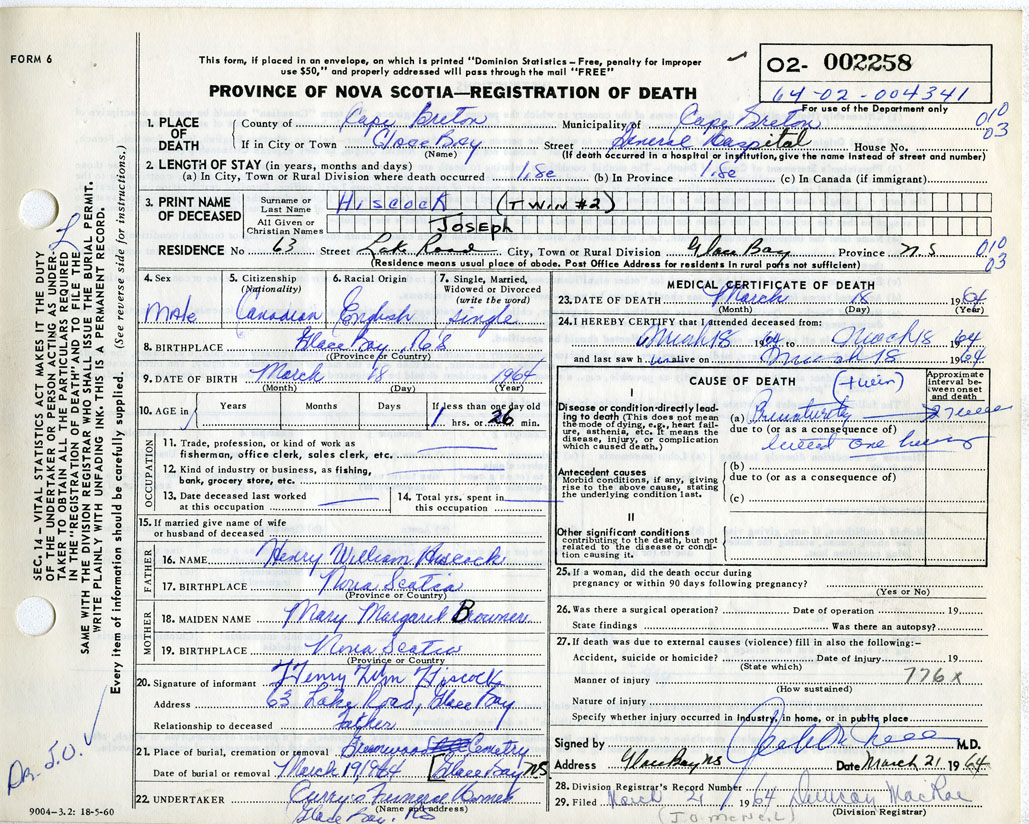 FORM 6
This form, if placed in an envelope, on which is printed "Dominion Statistics – Free, penalty for improper
use $50," and properly addressed will pass through the mail "FREE"
PROVINCE OF NOVA SCOTIA—REGISTRATION OF DEATH
O2- 002258
64-02-004341
For use of the Department only
010
03
1. PLACE OF DEATH
County of Cape Breton Municipality of Cape Breton
If in City or Town Glace Bay Street General Hospital House No.
(Name) (If death occurred in a hospital or institution, give the name instead of street and number)
2. LENGTH OF STAY (in years, months and days)
(a) In City, Town or Rural Division where death occurred (b) In Province (c) In Canada (if immigrant)
3. PRINT NAME OF DECEASED
Surname or Last Name HISCOCK (TWIN #2)
All Given or Christian Names JOSEPH
RESIDENCE No 63 Street Lake Road City, Town or Rural Division Glace Bay Province N.S 010
03
(Residence means usual place of abode. Post Office Address for residents in rural parts not sufficient)
4. Sex 5. Citizenship (Nationality) 6. Racial Origin 7. Single, Married, Widowed or Divorced (write the word)
Male Canadian English Single
8. BIRTHPLACE Glace Bay N.S
(Province or Country)
9. DATE OF BIRTH March 18 1964
(Month) (Day) (Year)
10. AGE in Years Months Days If less than one day old
1 hrs. or 26 min.
OCCUPATION
11. Trade, profession, or kind of work as
fisherman, office clerk, sales clerk, etc.
12. Kind of industry or business, as fishing,
bank, grocery store, etc.
13. Date deceased last worked
at this occupation
14. Total yrs. spent in
this occupation
15. If married give name of wife
or husband of deceased
FATHER
16. NAME Henry William Hiscock
17. BIRTHPLACE Nova Scotia
(Province or Country)
MOTHER
18. MAIDEN NAME Mary Margaret Browner
19. BIRTHPLACE Nova Scotia
(Province or Country)
20. Signature of informant Henry Wm Hiscock
Address 63 Lake Road, Glace Bay
Relationship to deceased Father
21. Place of burial, cremation or removal Greenwood Cemetry
Date of burial or removal March 19/1964 [Glace Bay NS.
22. UNDERTAKER Curry's Funeral Home
(Name and address)
Glace Bay, NS
9004-3.2: 18-5-60
MEDICAL CERTIFICATE OF DEATH
23. DATE OF DEATH March 18 1964
(Month) (Day) (Year)
24. I HEREBY CERTIFY that I attended deceased from:
March 18 1964 to March 18 1964
and last saw h alive on March 18 1964
CAUSE OF DEATH (twin)
Approximate interval between onset and death
I
Disease or condition directly leading to death (This does not mean the mode of dying, e.g., heart failure, asthenia, etc. It means the disease, injury, or complication which caused death.)
(a) Prematurity
due to (or as a consequence of)
lived one hour
Antecedent causes
Morbid conditions, if any, giving rise to the above cause, stating the underlying condition last.
(b)
due to (or as a consequence of)
(c)
II
Other significant conditions
contributing to the death, but not related to the disease or condition causing it.
25. If a woman, did the death occur during
pregnancy or within 90 days following pregnancy?
(Yes or No)
26. Was there a surgical operation? Date of operation 19
State findings Was there an autopsy?
27. If death was due to external causes (violence) fill in also the following:–
Accident, suicide or homicide? Date of injury 19
(State which)
Manner of injury 776x
(How sustained)
Nature of injury
Specify whether injury occurred in Industry, in home, or in public place
Signed by M.D.
Address Glace Bay NS Date March 21 1964
28. Division Registrar's Record Number
29. Filed March 21 1964 Duncan MacRae
(Division Registrar)
(J O McNeil)
SEC. 14 – VITAL STATISTICS ACT MAKES IT THE DUTY
OF THE UNDERTAKER OR PERSON ACTING AS UNDER-
TAKER TO OBTAIN ALL THE PARTICULARS REQUIRED
IN THE "REGISTRATION OF DEATH" AND TO FILE THE
SAME WITH THE DIVISION REGISTRAR WHO SHALL ISSUE THE BURIAL PERMIT.
WRITE PLAINLY WITH UNFADING INK. THIS IS A PERMANENT RECORD.
Every item of information should be carefully supplied. (See reverse side for instructions.)
Dr. J.O.